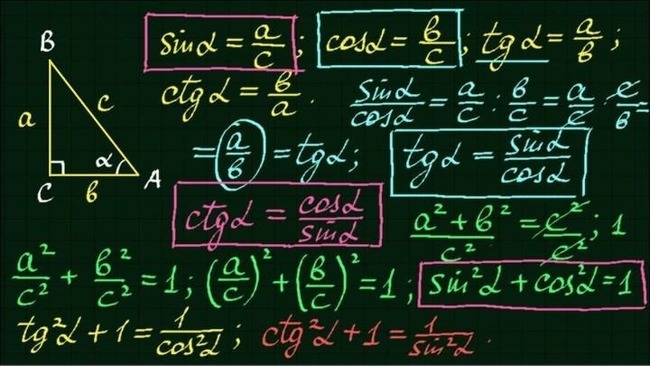 sinα = a/c; cosα = b/c; tgα = a/b;
B
ctgα = b/a. sinα/cosα = a/c : b/c = a/c · c/b =
a c
= a/b = tgα; tgα = sinα/cosα
α
C b A
ctgα = cosα/sinα (a² + b²)/c² = c²/c²; 1
a²/c² + b²/c² = 1; (a/c)² + (b/c)² = 1; sin²α + cos²α = 1
tg²α + 1 = 1/cos²α; ctg²α + 1 = 1/sin²α.